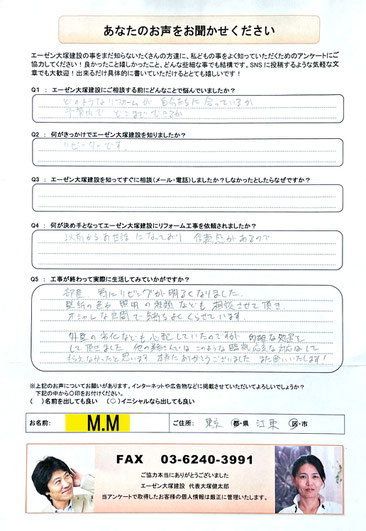 あなたのお声をお聞かせください
エーゼン大塚建設の事をまだ知らないたくさんの方達に、私どもの事をよく知っていただくためのアンケートにご
協力してください！良かったこと嬉しかったこと、どんな些細な事でも結構です。SNSに投稿するような気軽な文
章でも大歓迎！出来るだけ具体的に書いていただけるととても嬉しいです！
Q1： エーゼン大塚建設にご相談する前にどんなことで悩んでいましたか？
どのようなリフォームが自分たちに合っているか
予算内でどこまでできるか
Q2： 何がきっかけでエーゼン大塚建設を知りましたか？
リピーターです。
Q3： エーゼン大塚建設を知ってすぐに相談（メール・電話）しましたか？しなかったとしたらなぜですか？
Q4： 何が決め手となってエーゼン大塚建設にリフォーム工事を依頼されましたか？
以前からお世話になっており 信頼感があるので
Q5： 工事が終わって実際に生活してみていかがですか？
部屋 特にリビングが明るくなりました。
壁紙の色や照明の種類なども相談させて頂き
オシャレな空間で気持ちよくくらせています。
外壁の劣化なども心配していたのですが
して頂きました。
ありがとうございました
※上記のお声についてお願いがあります。インターネットや広告物などに掲載させていただいてよろしいでしょうか？
下記の中から〇印をお付けください。
（ ）名前を出しても良い （〇）イニシャルなら出しても良い
お名前: M.M ご住所: 東京 都・県 江東 区・市
FAX 03-6240-3991
ご協力本当にありがとうございました
エーゼン大塚建設 代表大塚健太郎
当アンケートで取得したお客様の個人情報は厳正に管理いたします。